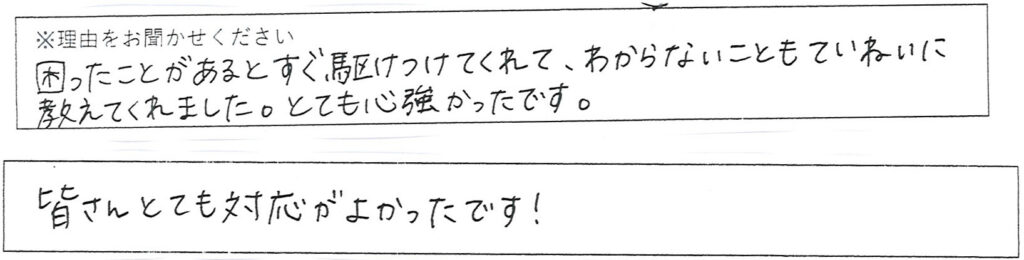 ※理由をお聞かせください
困ったことがあるとすぐ駆けつけてくれて、わからないこともていねいに
教えてくれました。とても心強かったです。
皆さんとても対応がよかったです!